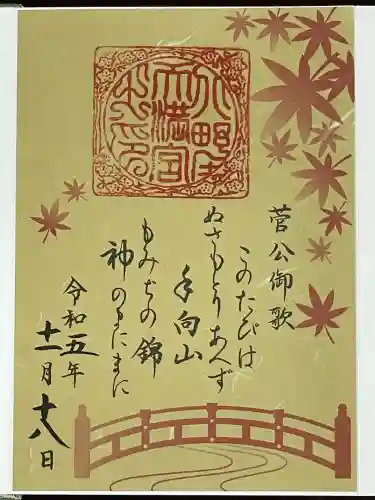 菅公御歌
このたびは
ぬさもとりあへず
手向山
もみぢの錦
神のまにまに
令和五年
十一月十八日